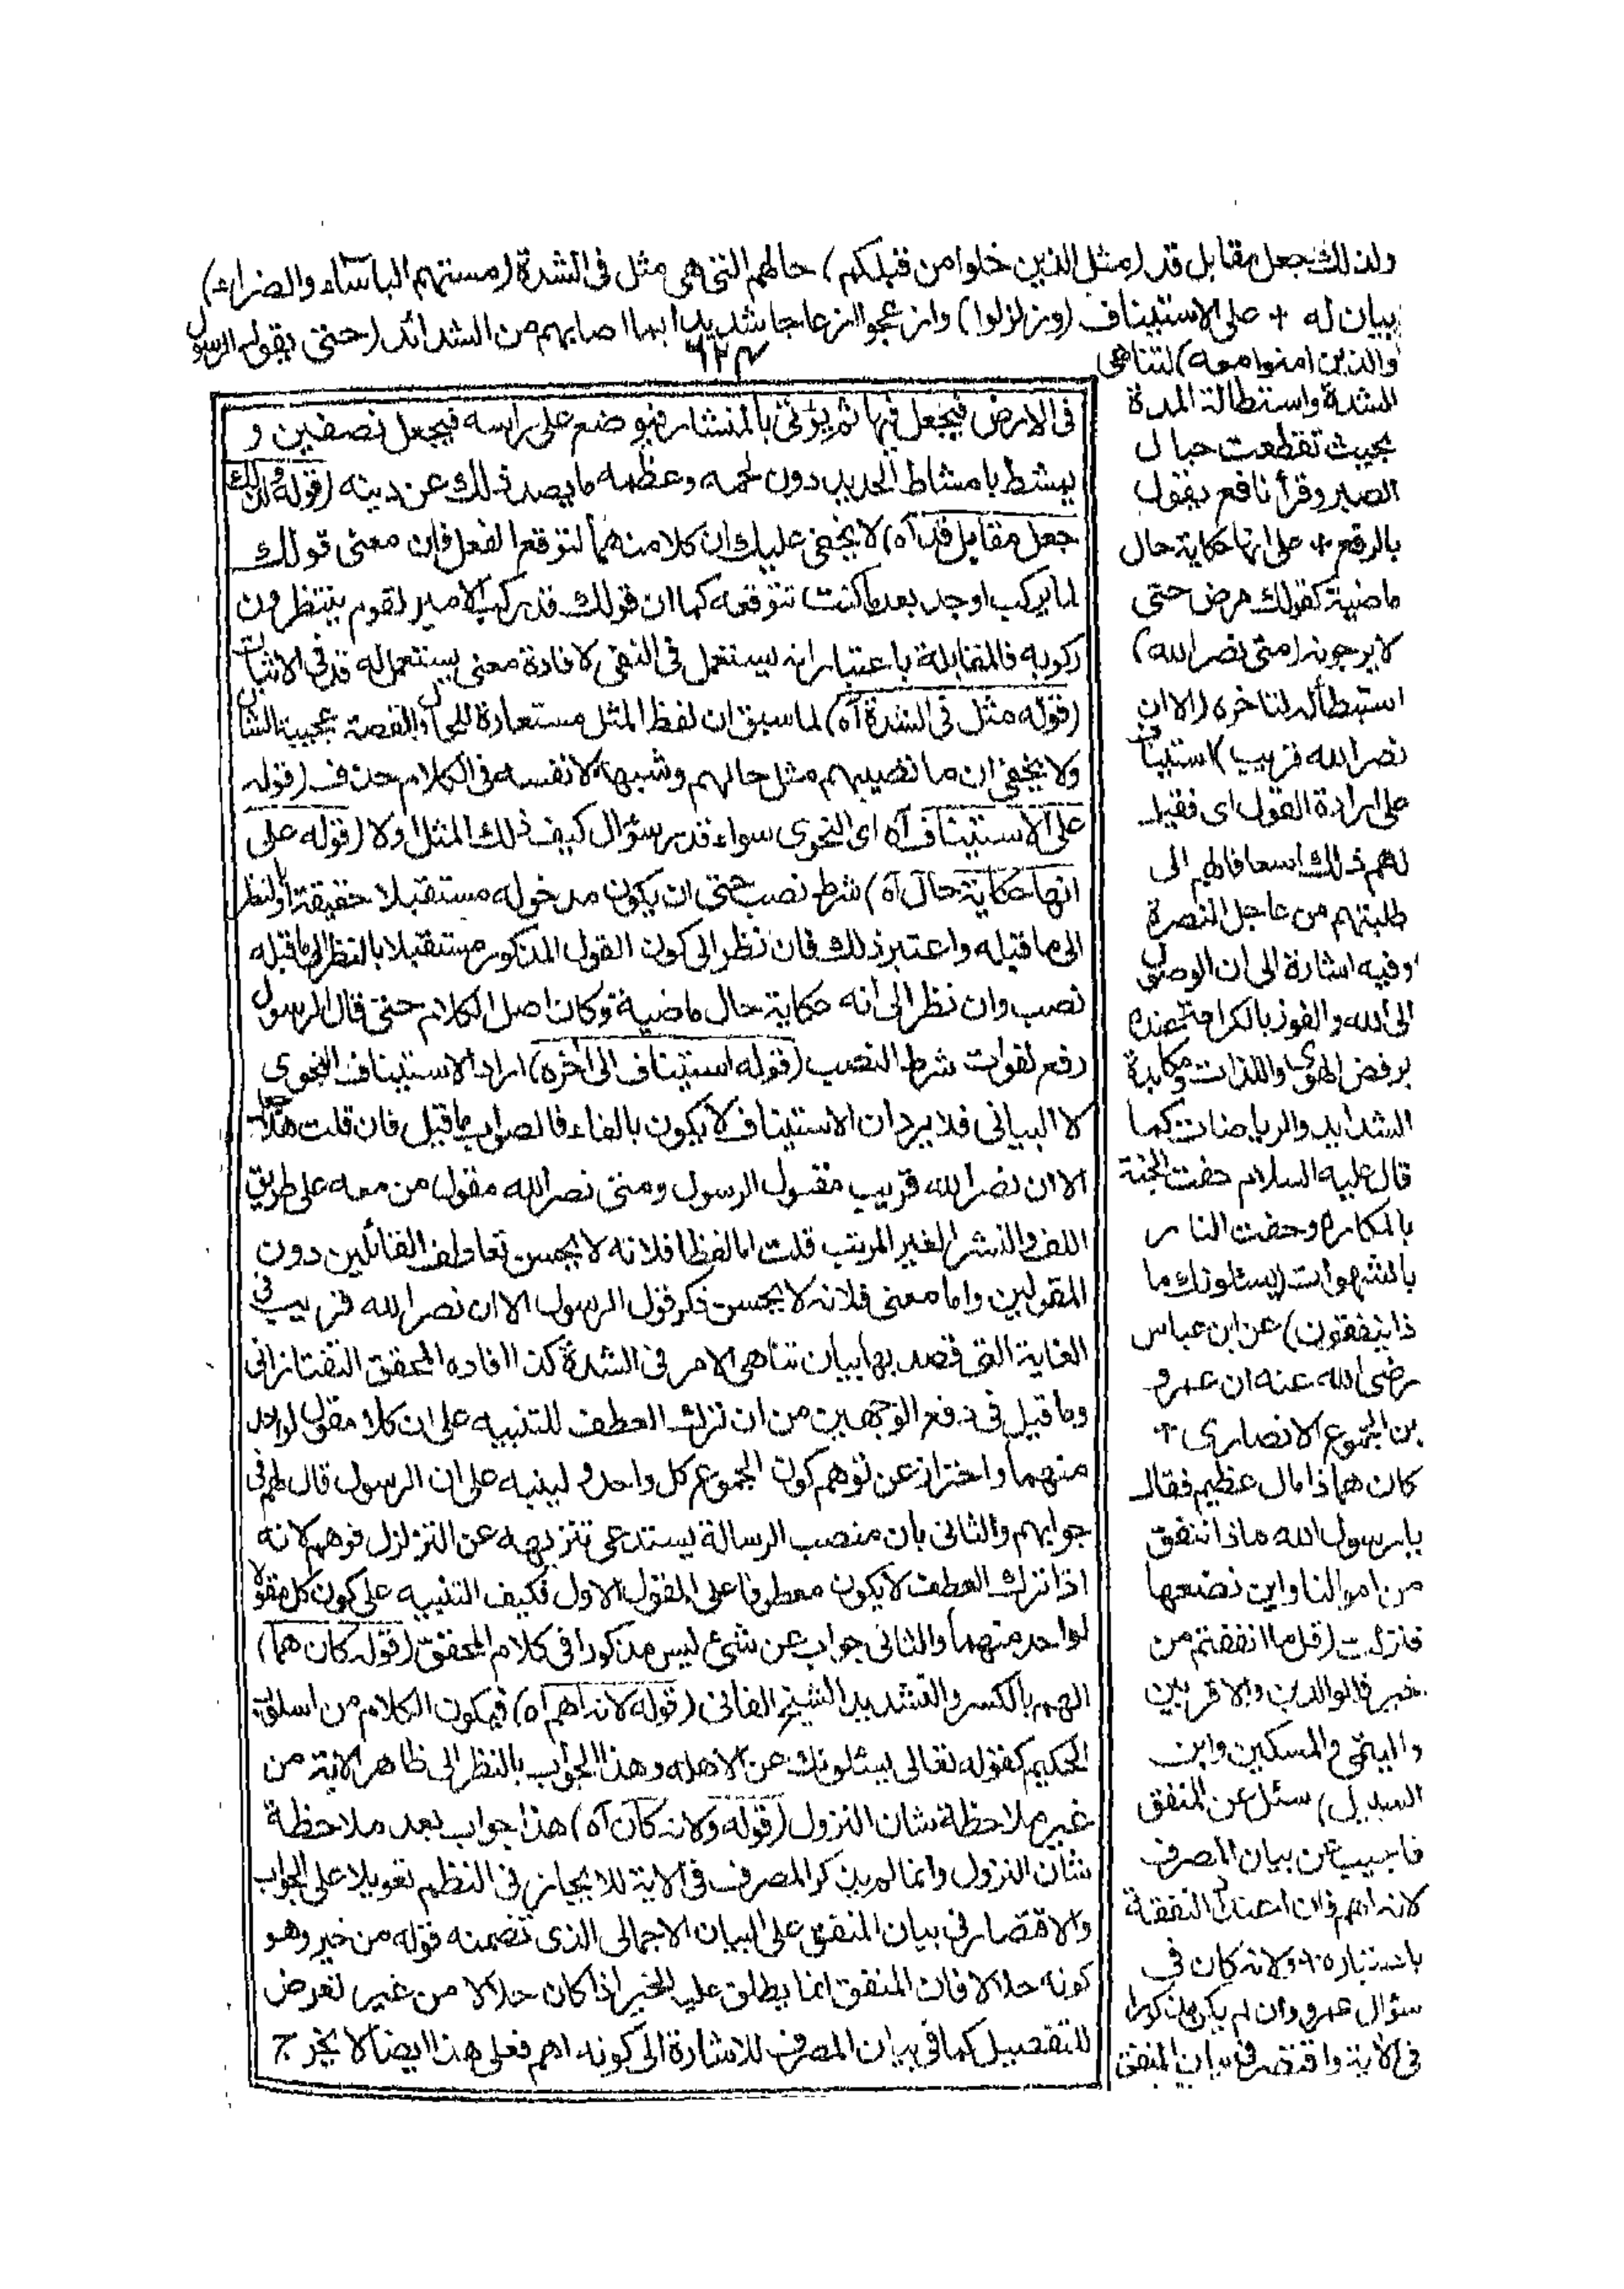 ولذلك جعل مقابل قد (مثل الذين خلوا من قبلكم) حالهم التى هى مثل فى الشدة (مستهم البأساء والضراء)
بيان له + على الاستيناف (وزلزلوا) وازعجوا ازعاجا شديدا بما اصابهم من الشدائد (حتى يقول الرسول
٦٢٣
والذين امنوا معه) لتناهى
الشدة واستطالة المدة
بحيث تقطعت حبال
الصبر وقرأ نافع يقول
بالرفع + على انها حكاية حال
ماضية كقولك مرض حتى
لا يرجونه (متى نصر الله)
استبطأ له لتاخره (الا ان
نصر الله قريب) استيناف
على ارادة القول اى فقيل
لهم ذلك اسعافا لهم الى
طلبتهم من عاجل النصرة
وفيه اشارة الى ان الوصول
الى الله والفوز بالكرامة عنده
برفض الهوى واللذات ومكابدة
الشدايد والرياضات كما
قال عليه السلام حفت الجنة
بالمكاره وحفت النار
بالشهوات (يسئلونك ما
ذا ينفقون) عن ابن عباس
رضى الله عنه ان عمرو
بن الجموع الانصارى +
كان هما ذا مال عظيم فقال
يا رسول الله ماذا ننفق
من اموالنا واين نضعها
فنزلت (قل ما انفقتم من
خير فللوالدين والاقربين
واليتمى والمسكين وابن
السبيل) سئل عن المنفق
فاجيب عن بيان المصرف
لانه اهم فان اعتداد النفقة
باعتباره + ولانه كان فى
سؤال عمرو وان لم يكن مذكورا
فى الاية واقتصر فى بيان المنفق
فى الارض فيجعل فيها ثم يؤتى بالمنشار فيوضع على راسه فيجعل نصفين و
يمشط بامشاط الحديد دون لحمه وعظمه ما يصد ذلك عن دينه (قوله ولذلك
جعل مقابل قد آه) لا يخفى عليك ان كلا منهما لتوقع الفعل فان معنى قولك
لما يركب اوجد بعد ما كنت تتوقعه كما ان قولك قد ركب الامير لقوم ينتظرون
ركوبه فالمقابلة باعتبار انه يستعمل فى النفى لافادة معنى يستعمل له قد فى الاثبات
(قوله مثل فى الشدة آه) لما سبق ان لفظ المثل مستعارة للحال والقصة عجيبة الشان
ولا يخفى ان ما نصيبهم مثل حالهم وشبهه لا نفسه فى الكلام حذف (قوله
على الاستيناف آه اى النحوى سواء قدر سؤال كيف ذلك المثل اولا (قوله على
انها حكاية حال آه) شرط نصب حتى ان يكون مدخوله مستقبلا حقيقة او بالنظر
الى ما قبله واعتبر ذلك فان نظر الى كون القول المذكور مستقبلا بالنظر الى ما قبله
نصب وان نظر الى انه حكاية حال ماضية وكان اصل الكلام حتى قال الرسول
رفع لفوات شرط النصب (قوله استيناف الى اخره) اراد الاستيناف النحوى
لا البيانى فلا يرد ان الاستيناف لا يكون بالفاء فالصواب ما قيل فان قلت هلا جعل
الا ان نصر الله قريب مقول الرسول ومتى نصر الله مقول من معه على طريق
اللف والنشر الغير المرتب قلت اما لفظا فلانه لا يحسن تعاطف القائلين دون
المقولين واما معنى فلانه لا يحسن ذكر قول الرسول الا ان نصر الله قريب فى
الغاية التى قصد بها بيان تناهى الامر فى الشدة كذا افاده المحقق التفتازانى
وما قيل فى دفع الوجهين من ان ترك العطف للتنبيه على ان كلا مقول لواحد
منهما واحتراز عن توهم كون المجموع كل واحد ولينبه على ان الرسول قال لهم فى
جوابهم والثانى بان منصب الرسالة يستدعى تنزيهه عن التزلزل فوهم لانه
اذا ترك العطف لا يكون معطوفا على القول الاول فكيف التنبيه على كون كل مقولا
لواحد منهما والثانى جواب عن شئ ليس مذكورا فى كلام المحقق (قوله كان هما)
الهم بالكسر والتشديد الشيخ الفانى (قوله لانه اهم آه) فيكون الكلام من اسلوب
الحكيم كقوله تعالى يسئلونك عن الاهله وهذا الجواب بالنظر الى ظاهر الاية من
غير ملاحظة شان النزول (قوله ولانه كان آه) هذا جواب بعد ملاحظة
شان النزول وانما لم يذكر المصرف فى الاية للايجاز فى النظم تعويلا على الجواب
والاقتصار فى بيان المنفق على البيان الاجمالى الذى تضمنه قوله من خير وهو
كونه حلالا فان المنفق انما يطلق عليه الخير اذا كان حلالا من غير تعرض
للتفصيل كما فى بيان المصرف للاشارة الى كونه اهم فعلى هذا ايضا لا يخرج